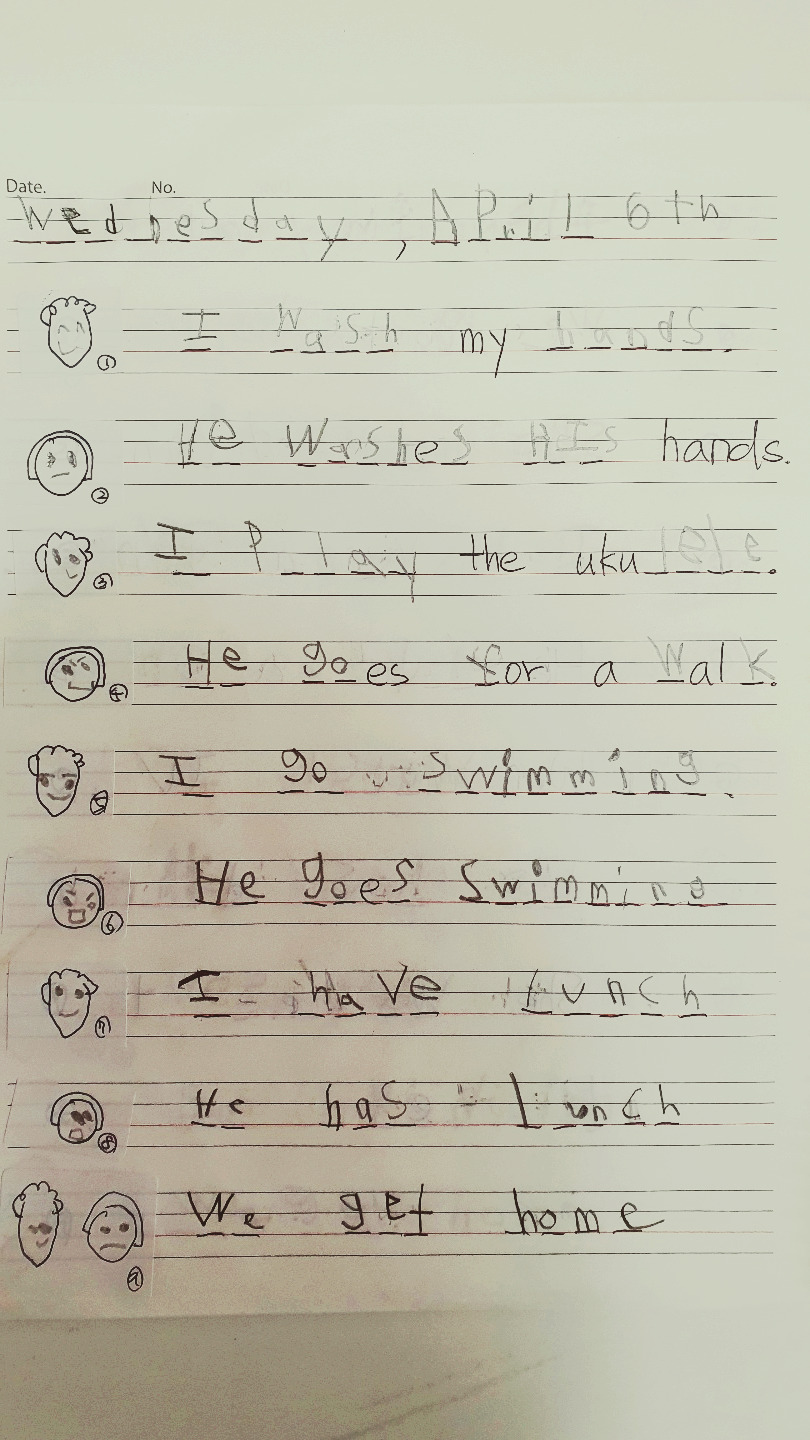 Date. No.
Wednesday, APril 6th
① I Wash my hands.
② He Washes HIS hands.
③ I Play the ukulele.
④ He goes for a Walk.
⑤ I go swimming.
⑥ He goes Swimming
⑦ I have Lunch
⑧ He has lunch
⑨ We get home